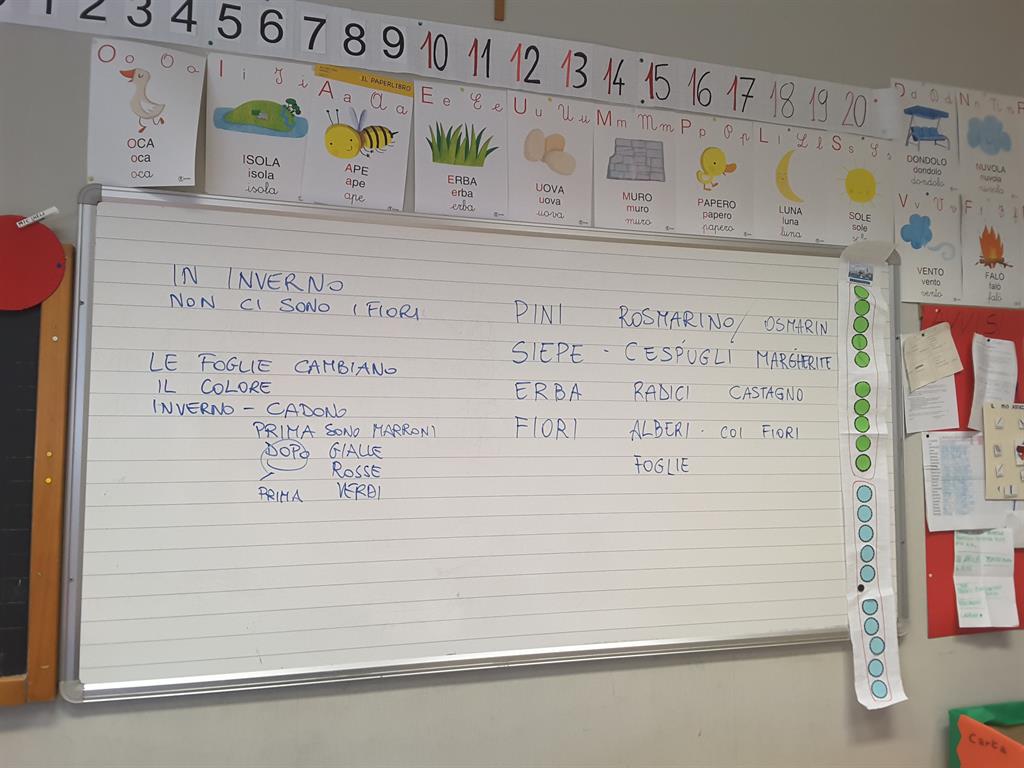 1 2 3 4 5 6 7 8 9 10 11 12 13 14 15 16 17 18 19 20
O o O o
OCA
oca
oca
I i I i
ISOLA
isola
isola
IL PAPERLIBRO
A a A a
APE
ape
ape
E e E e
ERBA
erba
erba
U u U u
UOVA
uova
uova
M m M m
MURO
muro
muro
P p P p
PAPERO
papero
papero
L l L l
LUNA
luna
luna
S s S s
SOLE
sole
D d D d
DONDOLO
dondolo
dondolo
N n N n
NUVOLA
nuvola
nuvola
V v V v
VENTO
vento
vento
F f F f
FALÒ
falò
falò
IN INVERNO
NON CI SONO I FIORI
LE FOGLIE CAMBIANO
IL COLORE
INVERNO - CADONO
PRIMA SONO MARRONI
DOPO GIALLE
ROSSE
PRIMA VERDI
PINI ROSMARINO/ OSMARIN
SIEPE - CESPUGLI MARGHERITE
ERBA RADICI CASTAGNO
FIORI ALBERI - COI FIORI
FOGLIE
Carta